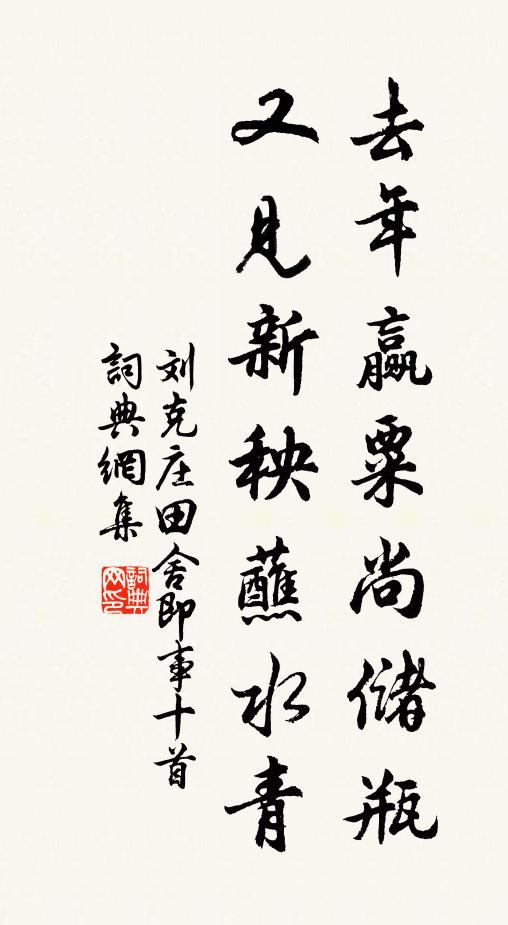 去年赢粟尚储瓶
又见新秧蘸水青
刘克庄田舍即事十首
詞典網集
詞典网印